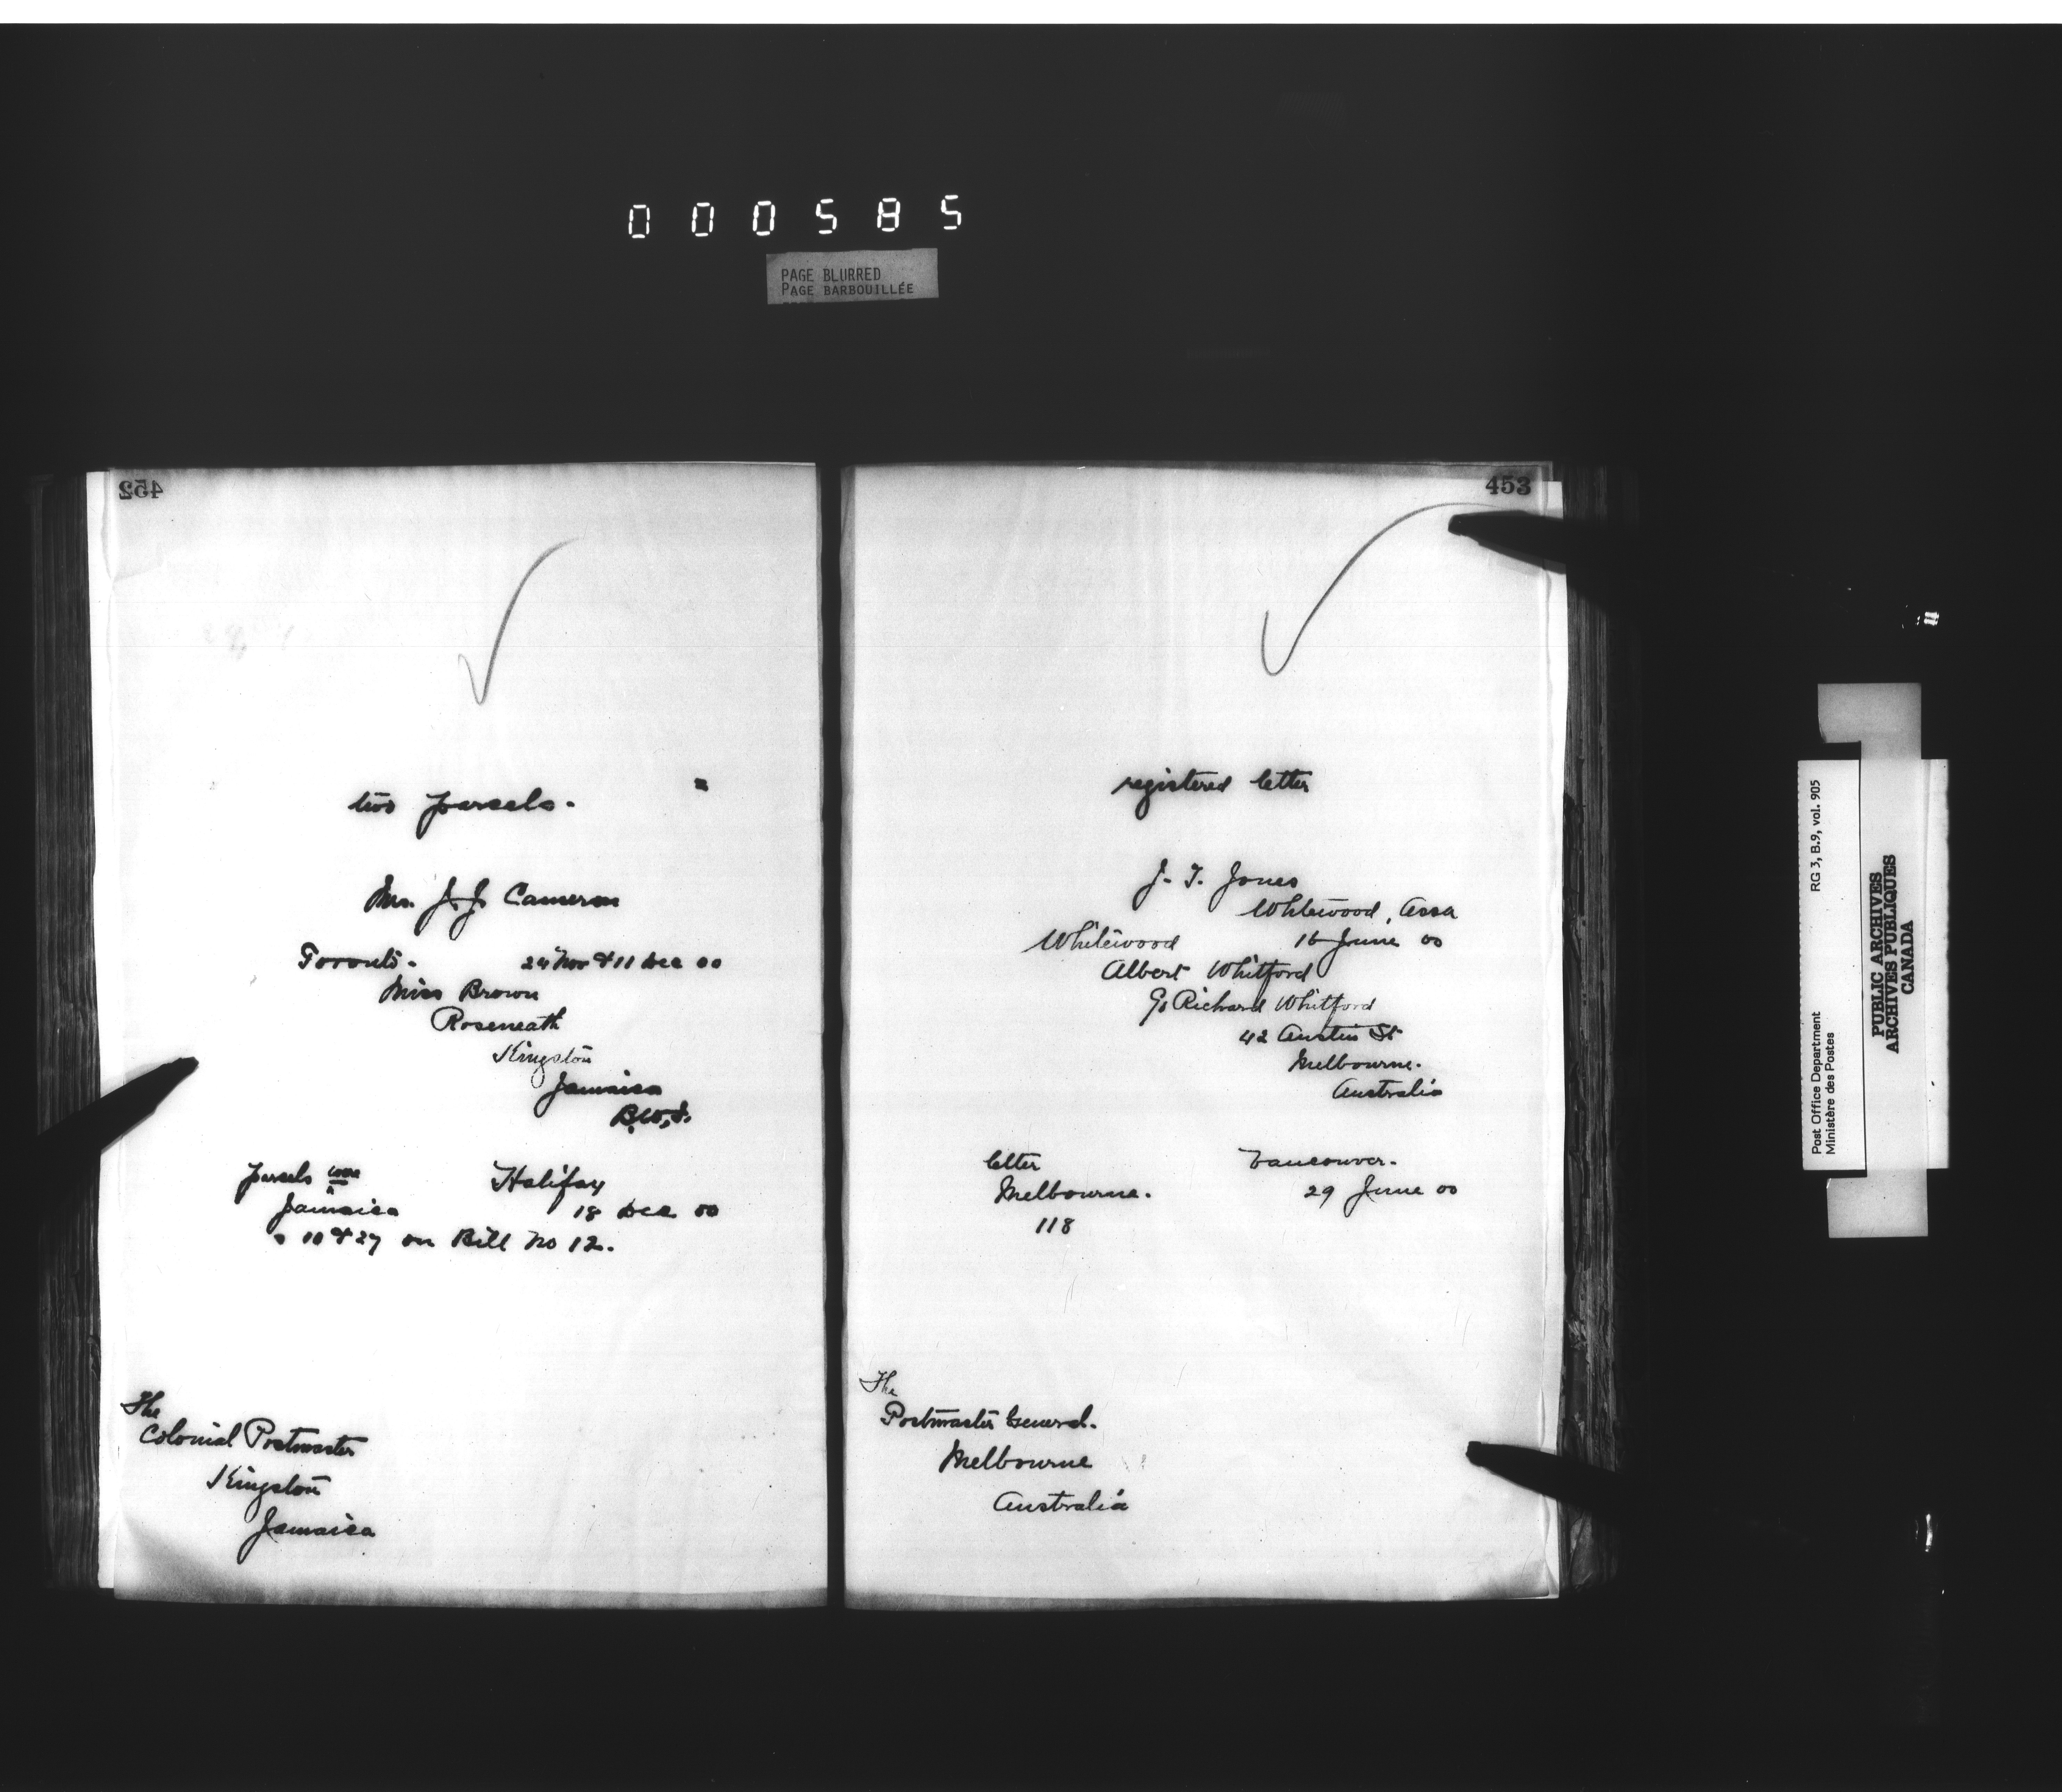 000585
PAGE BLURRED
PAGE BARBOUILLÉE
452
two parcels.
Mrs. J. J. Cameron
Toronto. 24 Nov & 11 Dec 00
Miss Brown
Roseneath
Kingston
Jamaica
B.W.I.
parcels were Halifax
Jamaica 18 Dec 00
10 & 27 on Bill No 12.
The
Colonial Postmaster
Kingston
Jamaica
453
registered letter
J. T. Jones
Whitewood, Assa
Whitewood 16 June 00
Albert Whitford
c/o Richard Whitford
42 Austin St
Melbourne.
Australia
letter Vancouver.
Melbourne. 29 June 00
118
The
Postmaster General.
Melbourne
Australia
Post Office Department RG 3, B.9, vol. 905
Ministère des Postes
PUBLIC ARCHIVES
ARCHIVES PUBLIQUES
CANADA